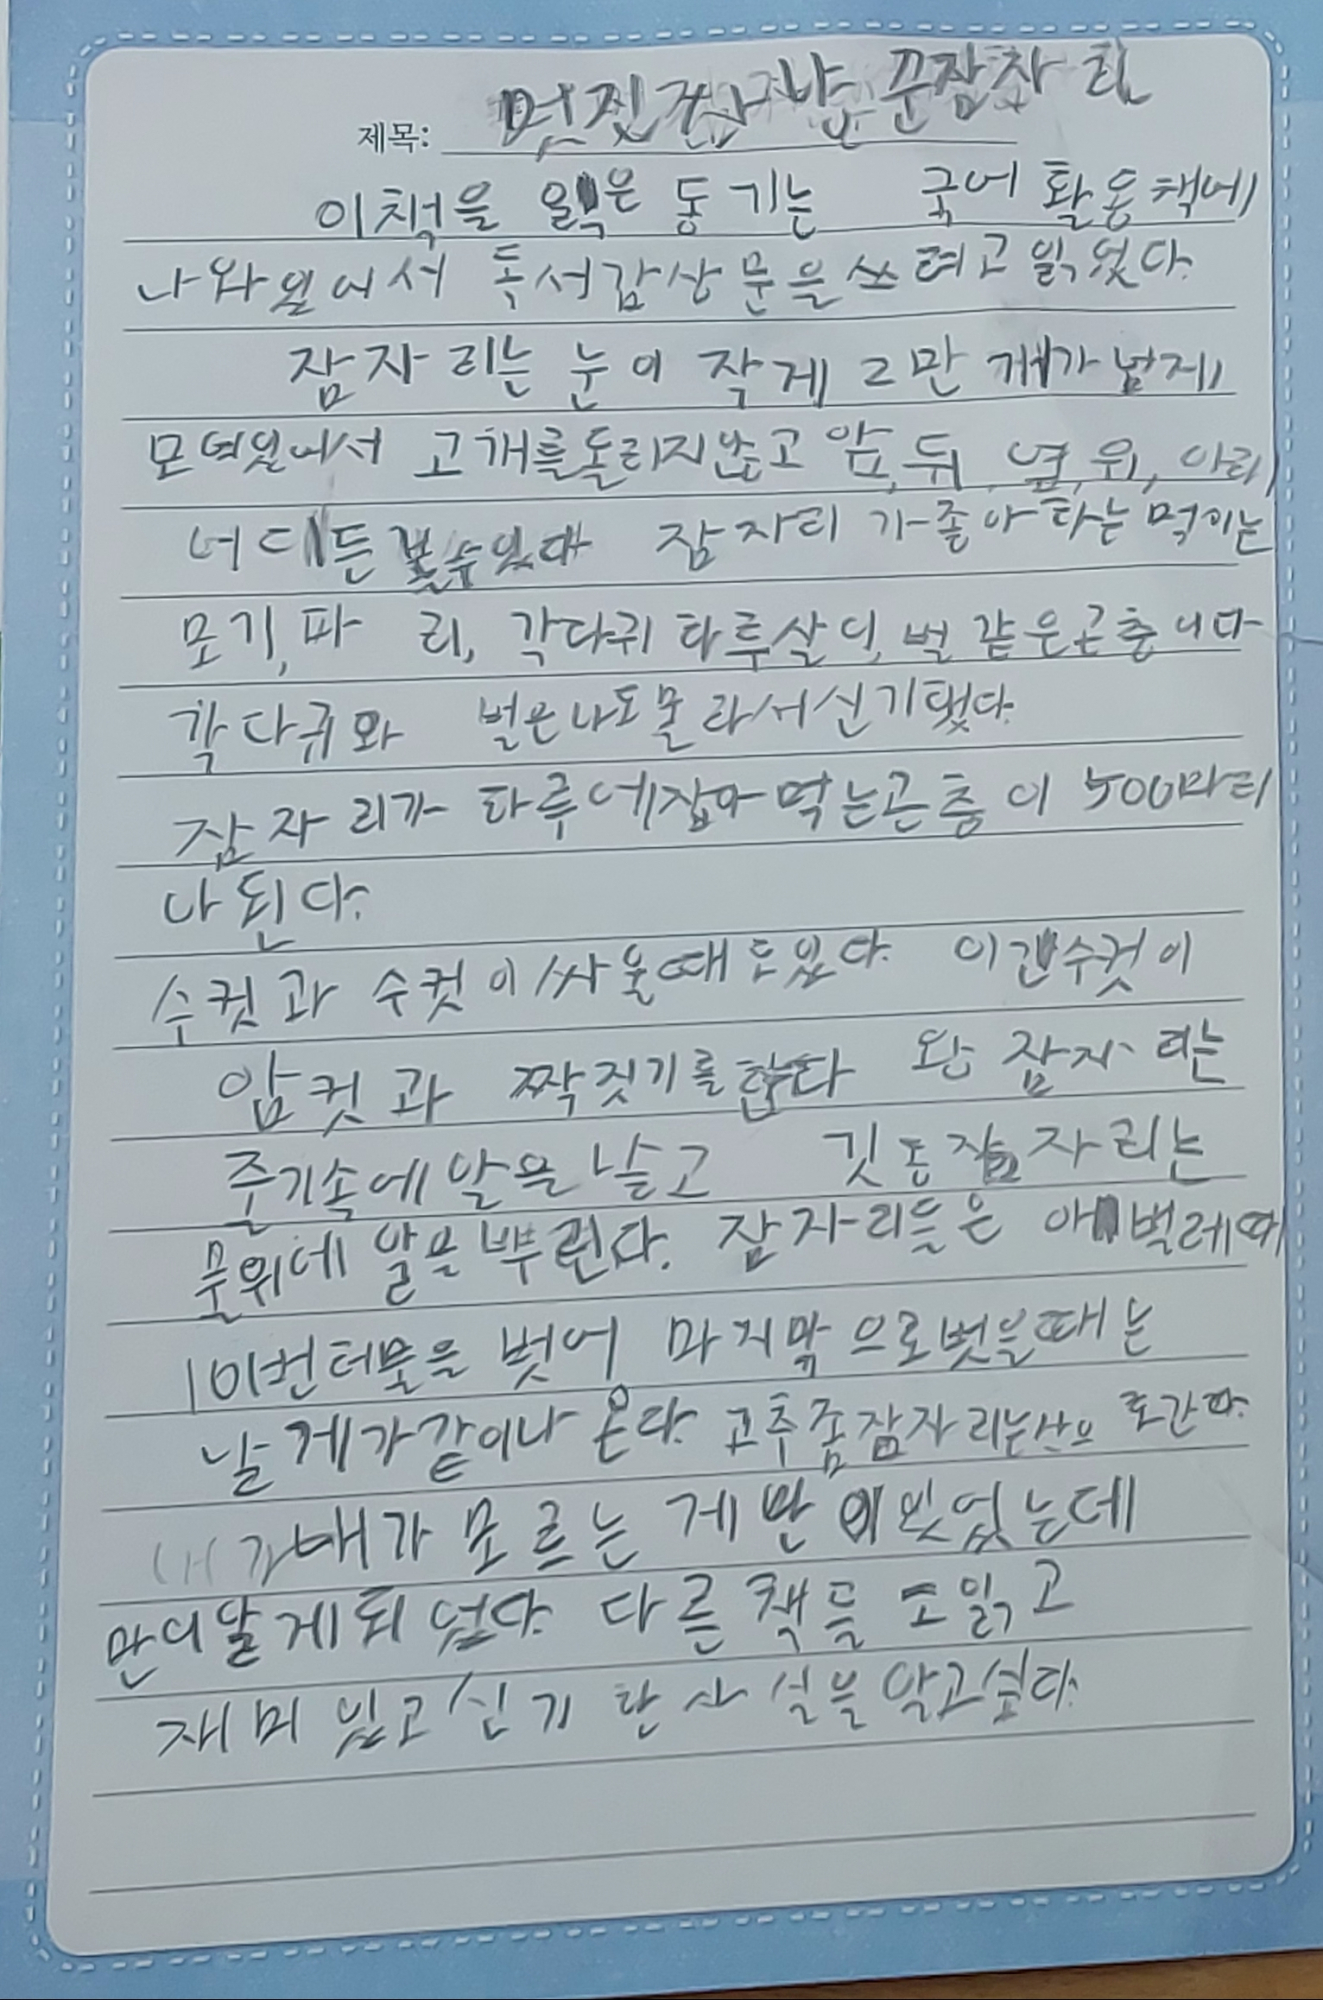 제목: 멋진 사냥꾼 잠자리
이책을 읽은 동기는 국어 활동책에
나와 있어서 독서감상문을쓰려고 읽었다.
잠자리는 눈이 작게 2만 개가 넘게
모여있어서 고개를돌리지않고 앞, 뒤, 옆, 위, 아래,
어디든볼수있다 잠자리가좋아하는 먹이는
모기, 파리, 각다귀 하루살이, 벌 같은곤충이다
각다귀와 벌은나도몰라서신기했다.
잠자리가 하루에잡아먹는곤충이 500마리
나 된다.
수컷과 수컷이싸울때도있다. 이긴수컷이
암컷과 짝짓기를한다 왕잠자리는
줄기속에알을낳고 깃동잠자리는
물위에 알을뿌린다. 잠자리들은 애벌레때
10번 허물을 벗어 마지막으로벗을때는
날게가같이나온다. 고추좀잠자리는산으로간다.
내가 모르는 게 많이있었는데
많이알게되었다. 다른 책들도읽고
재미있고신기한사실을알고싶다.